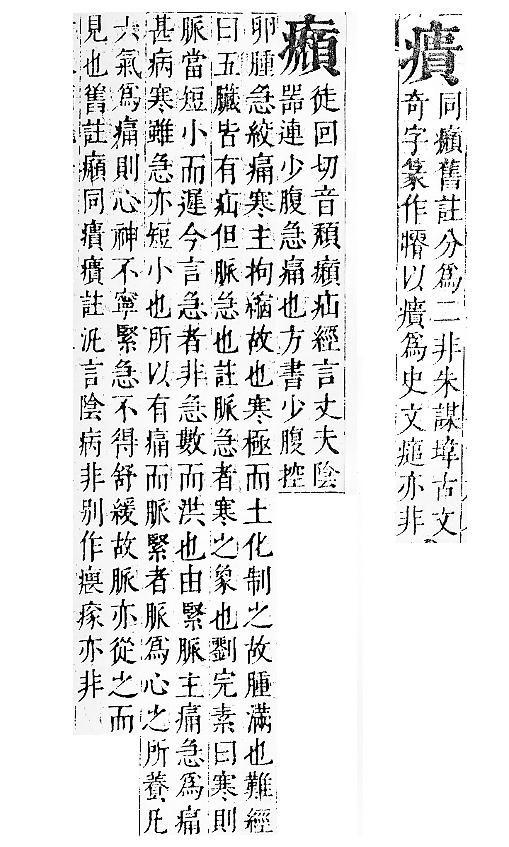 㿉
同㿗舊註分爲二非朱謀㙔古文
奇字篆作以㿉爲史文亦非
㿗
徒回切音頹㿗疝經言丈夫陰
噐連少腹急痛也方書少腹控
卵腫急絞痛寒主拘縮故也寒極而土化制之故腫滿也難經
曰五臟皆有疝但脈急也註脈急者寒之象也劉完素曰寒則
脈當短小而遲今言急者非急數而洪也由緊脈主痛急爲痛
甚病寒雖急亦短小也所以有痛而脈緊者脈爲心之所養凡
六氣爲痛則心神不寧緊急不得舒緩故脈亦從之而
見也舊註㿗同㿉㿉註汎言陰病非別作亦非